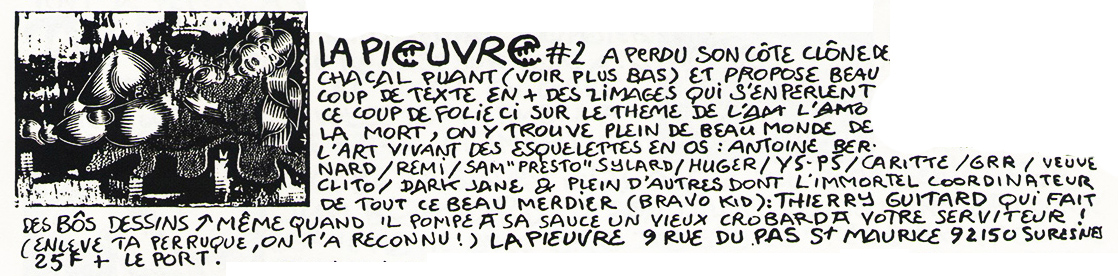 LA PIEUVRE #2 A PERDU SON CÔTE CLÔNE DE
CHACAL PUANT (VOIR PLUS BAS) ET PROPOSE BEAU
COUP DE TEXTE EN + DES ZIMAGES QUI S'ENPERLENT
CE COUP DE FOLIE CI SUR LE THEME DE L'AM L'AMO
LA MORT, ON Y TROUVE PLEIN DE BEAU MONDE DE
L'ART VIVANT DES ESQUELETTES EN OS : ANTOINE BER-
NARD / REMI / SAM "PRESTO" SYLARD / HUGER / Y5-P5 / CARITTE / GRR / VEUVE
CLITO / DARK JANE & PLEIN D'AUTRES DONT L'IMMORTEL COORDINATEUR
DE TOUT CE BEAU MERDIER (BRAVO KID): THIERRY GUITARD QUI FAIT
DES BÔS DESSINS ↗ MÊME QUAND IL POMPE A SA SAUCE UN VIEUX CROBARD A VOTRE SERVITEUR !
(ENLEVE TA PERRUQUE, ON T'A RECONNU !) LA PIEUVRE 9 RUE DU PAS St MAURICE 92150 SURESNES
25F + LE PORT.